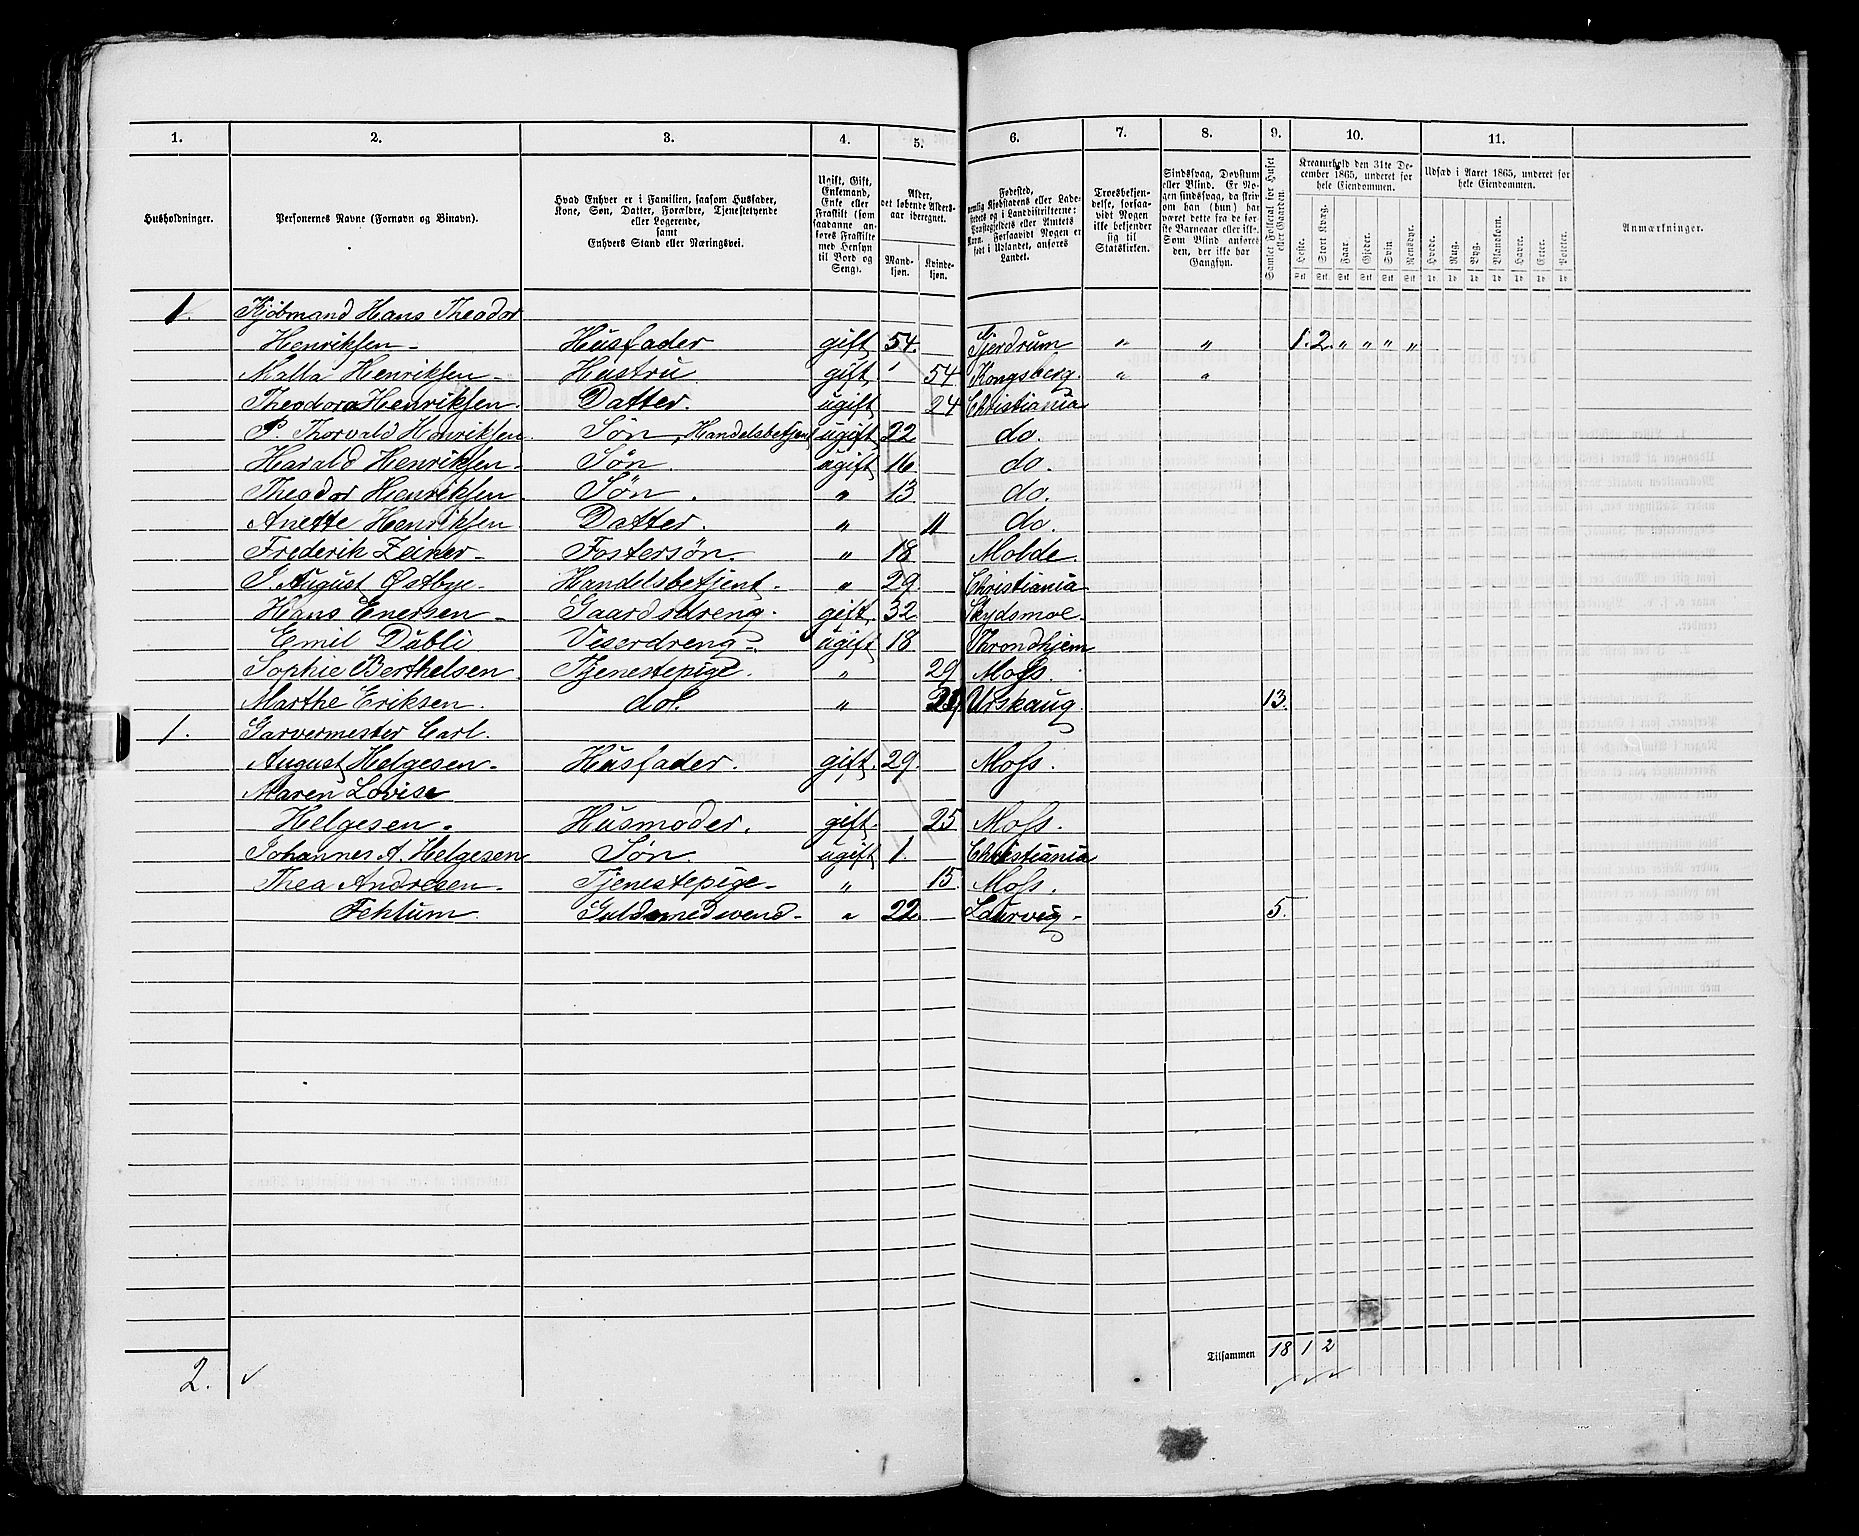 1. 2. 3. 4. 5. 6. 7. 8. 9. 10. 11.
Husholdninger.
Personernes Navne (Fornavn og Binavn).
Hvad Enhver er i Familien, saasom Husfader,
Kone, Søn, Datter, Forældre, Tjenestetyende
eller Logerende,
samt
Enhvers Stand eller Næringsvei.
Ugift, Gift,
Enkemand,
Enke eller
Fraskilt (som
saadanne an-
føres Fraskilte
med Hensyn
til Bord og
Seng).
Alder,
det løbende Alders-
aar iberegnet.
Mand-
kjøn.
Kvinde-
kjøn.
Fødested,
nemlig Kjøbstadens eller Lade-
stedets og i Landdistrikterne:
Præstegjeldets eller Amtets
Navn. Forsaavidt Nogen er
født i Udlandet, anføres
Landet.
Troesbekjen-
delse, forsaa-
vidt Nogen
ikke bekjender
sig til
Statskirken.
Sindssvag, Døvstum
eller Blind. Er No-
gen sindssvag, da skriv
om han (hun) har
været dette fra de før-
ste Barneaar eller ikke.
Som Blind anføres
den, der ikke har
Gangsyn.
Samlet Folketal for Huset
eller Gaarden.
Kreaturhold den 31te De-
cember 1865, underet for
hele Eiendommen.
Heste. Stort Kvæg. Faar. Gjeder. Svin. Rensdyr.
Udsæd i Aaret 1865, underet for
hele Eiendommen.
Hvede. Rug. Byg. Blandkorn. Havre. Erter. Poteter.
Anmærkninger.
1. Kjøbmand Hans Theodor
Henriksen - Husfader gift 54. Gjerdrum „ „ 1. 2. „ „ „ „
Malla Henriksen - Hustru gift 54 Kongsberg. „ „
Theodora Henriksen. Datter. ugift 24 Christiania
P. Thorvald Henriksen. Søn, Handelsbetjent ugift 22 do.
Harald Henriksen - Søn. ugift 16 do.
Theodor Henriksen Søn. „ 13 do.
Anette Henriksen Datter. „ 11 do.
Frederik Zeiner - Fostersøn. „ 18 Molde.
August Østbye - Handelsbetjent. „ 29 Christiania
Hans Enersen - Gaardsdreng. gift 32 Skydsmoe
Emil Dübli Viserdreng - ugift 18 Throndhjem
Sophie Berthelsen Tjenestepige. „ 29 Moss.
Marthe Eriksen. do. „ Urskaug 13.
1. Garvermester Carl.
August Helgesen - Husfader. gift. 29. Moss.
Maren Lovise
Helgesen - Husmoder. gift. 25 Moss.
Johannes A. Helgesen Søn. ugift 1. Christiania
Thea Andresen - Tjenestepige - „ 15 Moss.
Fehtum Guldsmedsvend - „ 22 Laurvig - 5.
Tilsammen 18 1 2
2.